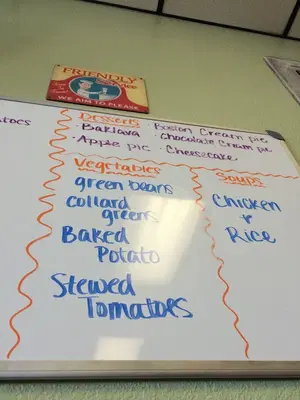 FRIENDLY
WE AIM TO PLEASE
Desserts
Baklava · Boston Cream pie
· Chocolate Cream pie
· Apple pie · Cheesecake
Vegetables
green beans
Collard
greens
Baked
Potato
Stewed
Tomatoes
Soups
Chicken
&
Rice